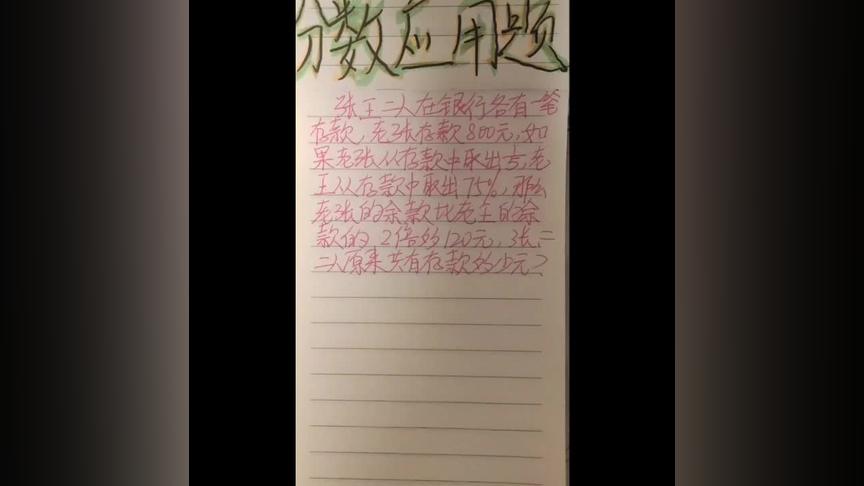 分数应用题
张王二人在银行各有一笔
存款，老张存款800元，如
果老张从存款中取出，老
王从存款中取出75%，那么
老张的余款比老王的余
款的2倍多120元，张
二人原来共有存款多少元？